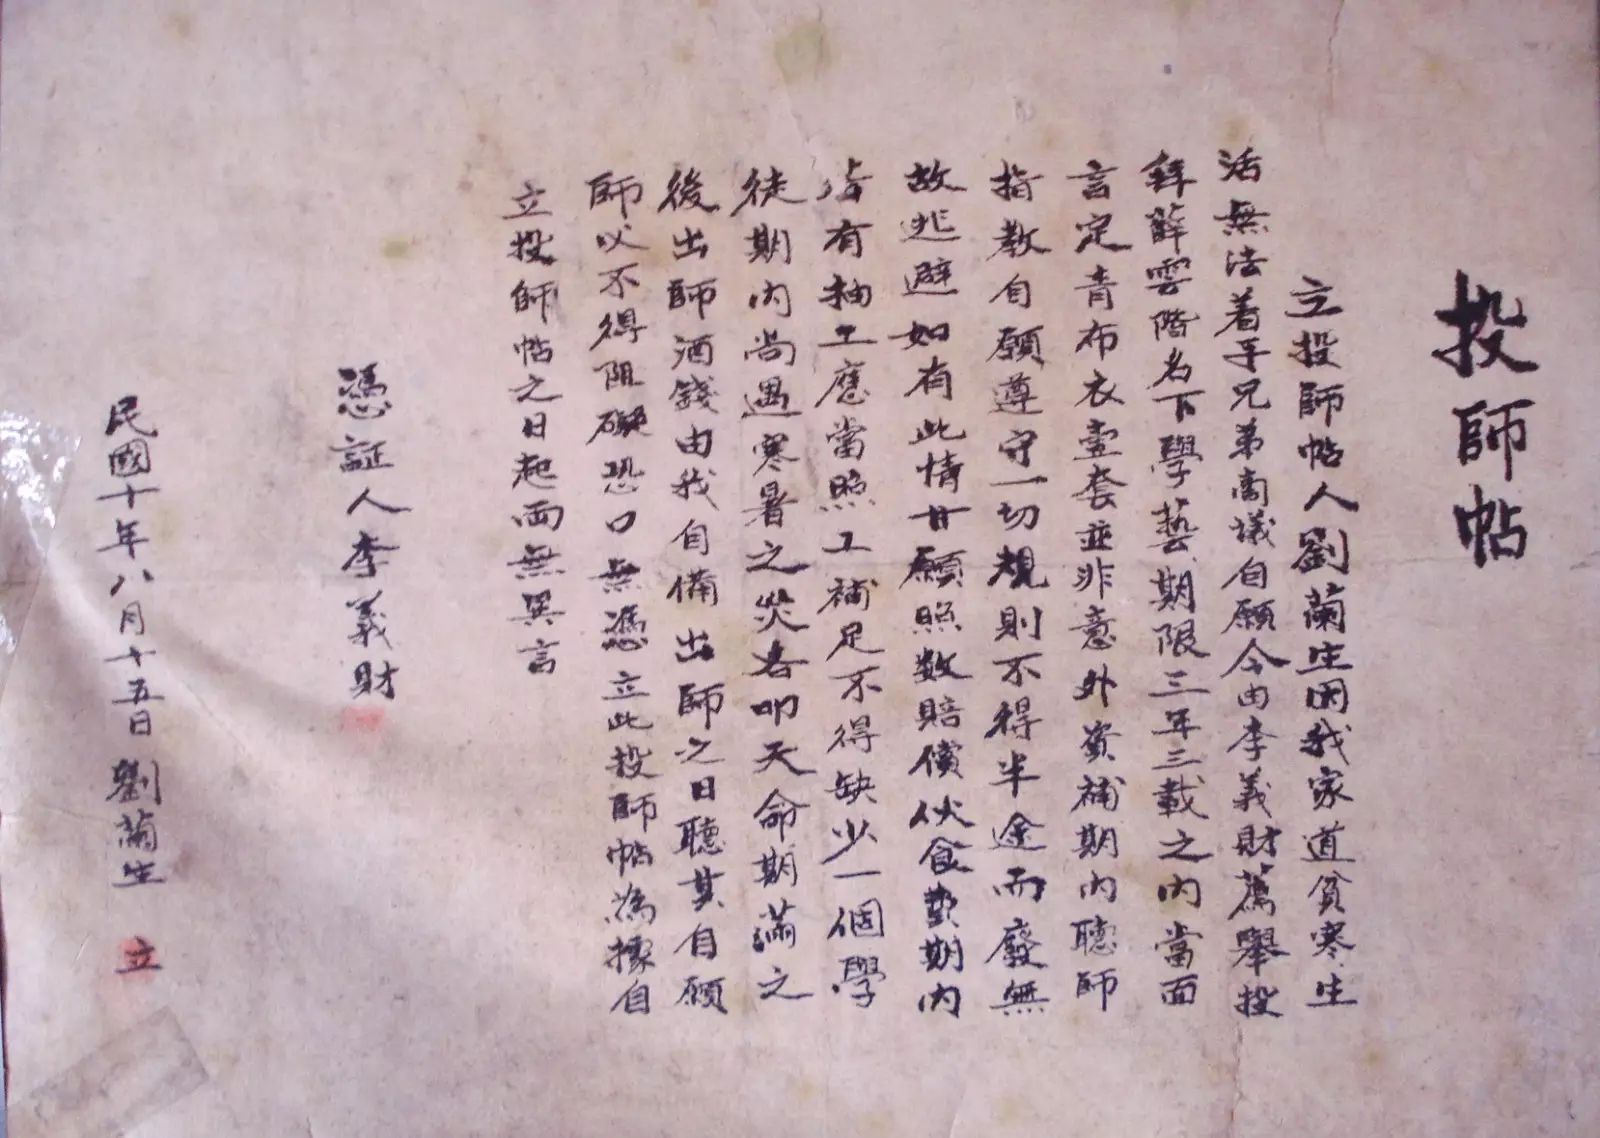 投師帖
立投師帖人劉蘭生因我家道貧寒生
活無法着手兄弟商議自願今由李義財薦舉投
拜薛雲階名下學藝期限三年三載之內當面
言定青布衣壹套並非意外資補期內聽師
指教自願遵守一切規則不得半途而廢無
故逃避如有此情甘願照数賠償伙食費期內
有抽工應當照工補足不得缺少一個學
徒期內尚遇寒暑之災各叩天命期滿之
後出師酒錢由我自備出師之日聽其自願
師以不得阻礙恐口無憑立此投師帖為據自
立投師帖之日起両無異言
憑証人李義財
民國十年八月十五日劉蘭生 立